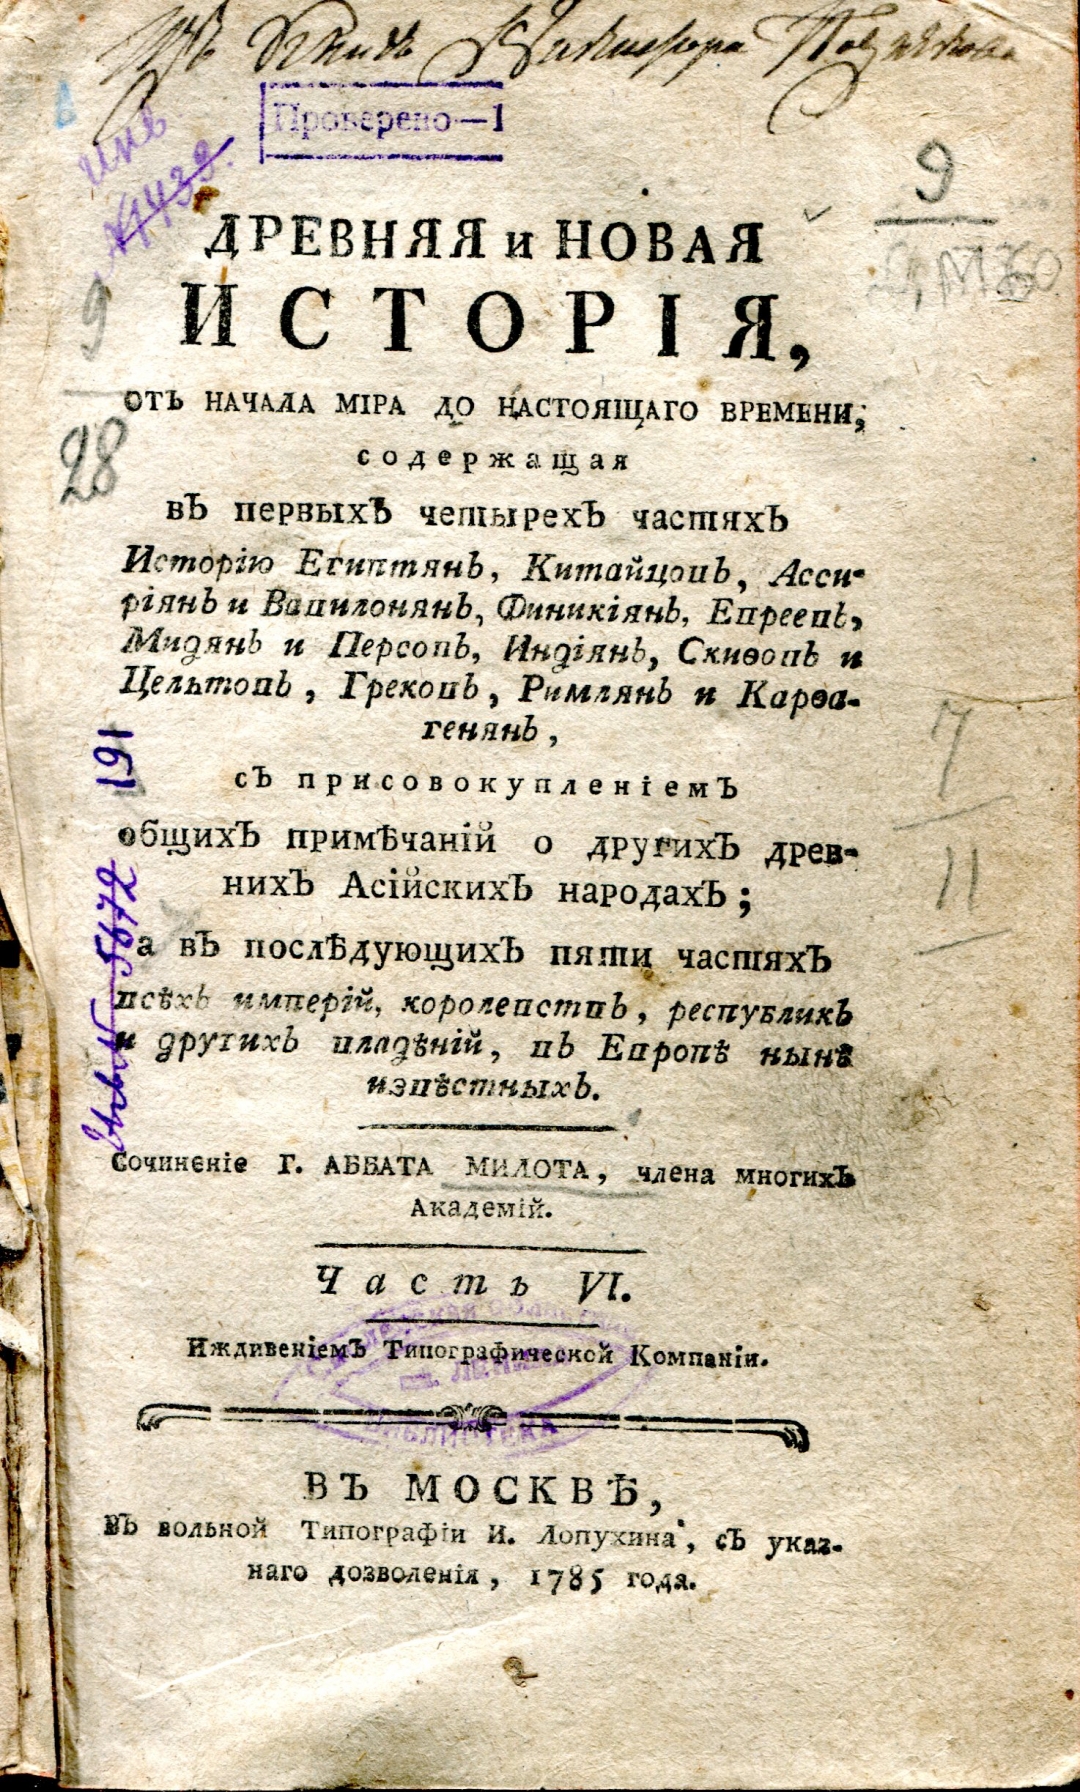 Изъ Книгъ Никифора
Проверено—1
инв
№1439.
9
9
28
ДРЕВНЯЯ и НОВАЯ
ИСТОРІЯ,
отъ начала міра до настоящаго времени,
содержащая
въ первыхъ четырехъ частяхъ
Исторію Египтянъ, Китайцовъ, Асси-
ріянъ и Вавилонянъ, Финикіянъ, Евреевъ,
Мидянъ и Персовъ, Индіянъ, Скиѳовъ и
Цельтовъ, Грековъ, Римлянъ и Карѳа-
генянъ,
съ присовокупленіемъ
общихъ примѣчаній о другихъ древ-
нихъ Асійскихъ народахъ;
а въ послѣдующихъ пяти частяхъ
всѣхъ имперій, королевствъ, республикъ
и другихъ владѣній, въ Европѣ нынѣ
извѣстныхъ.
7
11
191
5672
Сочиненіе Г. АББАТА МИЛОТА, члена многихъ
Академій.
Часть VI.
Иждивеніемъ Типографической Компаніи.
БИБЛИОТЕКА
ВЪ МОСКВѢ,
Въ вольной Типографіи И. Лопухина, съ указ-
наго дозволенія, 1785 года.